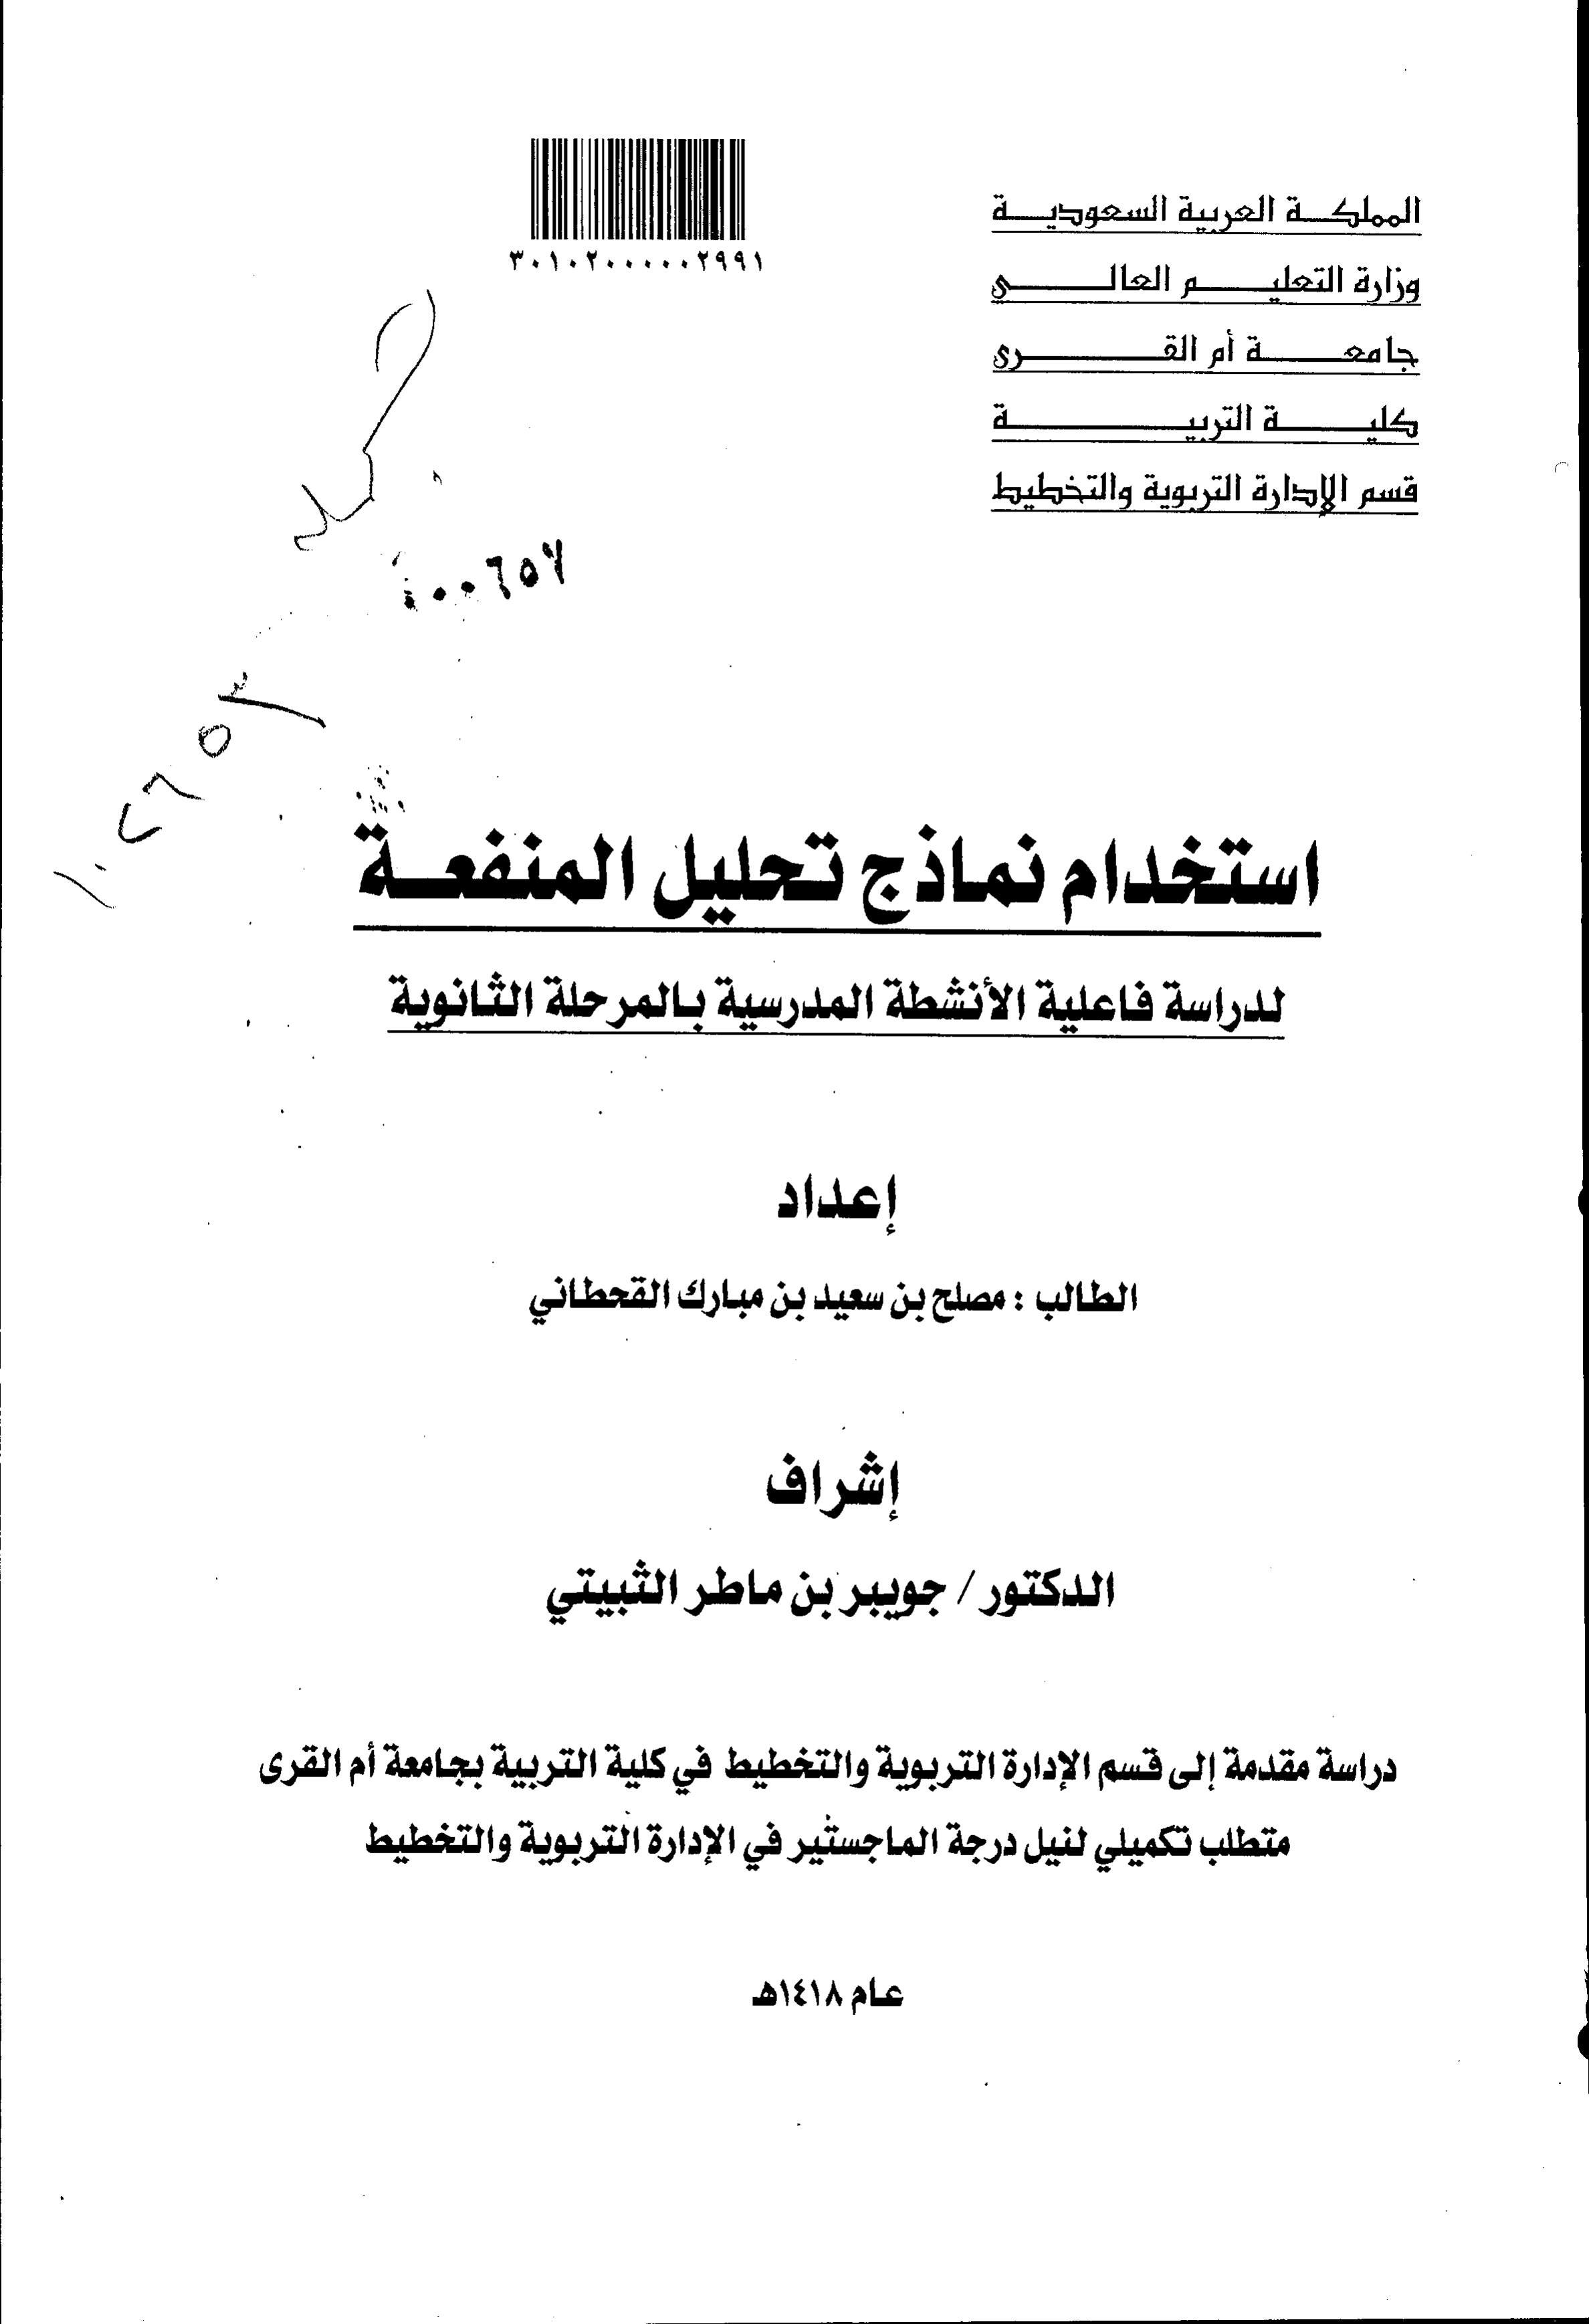 المملكة العربية السعودية
وزارة التعليم العالي
جامعة أم القرى
كلية التربية
قسم الإدارة التربوية والتخطيط
٣٠١٠٢٠٠٠٠٠٢٩٩١
استخدام نماذج تحليل المنفعة
لدراسة فاعلية الأنشطة المدرسية بالمرحلة الثانوية
إعداد
الطالب : مصلح بن سعيد بن مبارك القحطاني
إشراف
الدكتور / جويبر بن ماطر الثبيتي
دراسة مقدمة إلى قسم الإدارة التربوية والتخطيط في كلية التربية بجامعة أم القرى
متطلب تكميلي لنيل درجة الماجستير في الإدارة التربوية والتخطيط
عام ١٤١٨هـ